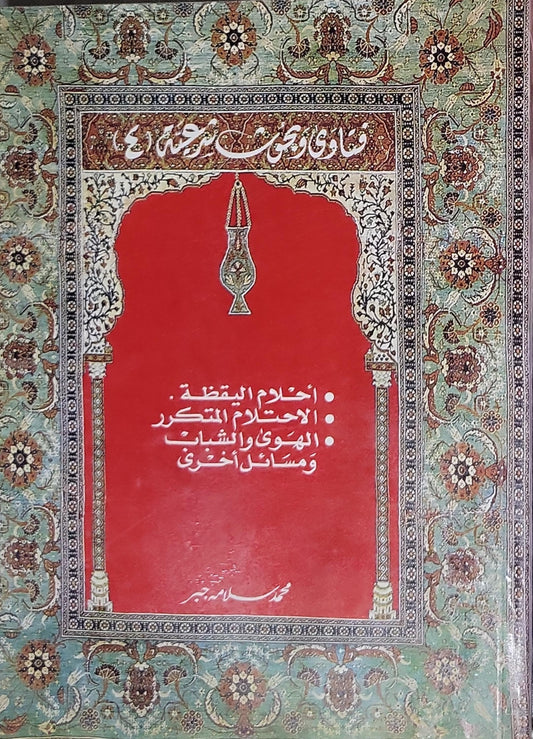 فتاوى وبحوث شرعية (٤)
• أحلام اليقظة .
• الاحتلام المتكرر
• الهوى والشباب
ومسائل أخرى
محمد سلامه جبر